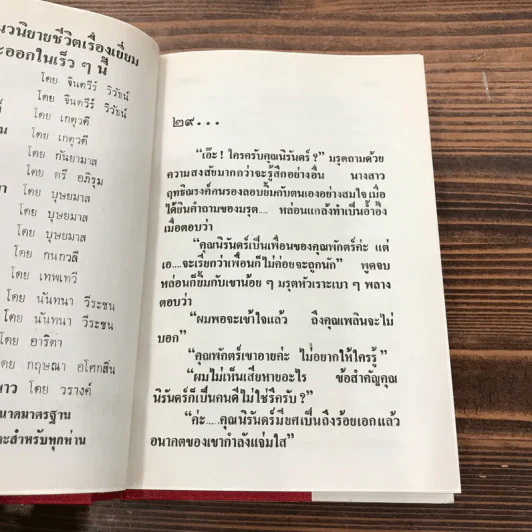 นวนิยายชีวิตเรื่องเยี่ยม
ะออกในเร็ว ๆ นี้
โดย จินตวีร์ วิวัธน์
โดย จินตวีร์ วิวัธน์
โดย เกตุวดี
โดย เกตุวดี
โดย ทันยามาล
โดย ตรี อภิรุม
โดย บุษยมาส
โดย บุษยมาส
โดย บุษยมาส
โดย กนกวลี
โดย เทพเทวี
โดย นันทนา วีระชน
โดย นันทนา วีระชน
โดย อาริตา
โดย กฤษณา อโศกสิน
นาว โดย วรางค์
นาดมาตรฐาน
ะสำหรับทุกท่าน
๒๙...
“เอ๊ะ ! ใครครับคุณนิรันดร์ ?” มรุตถามด้วย
ความสงสัยมากกว่าจะรู้สึกอย่างอื่น นางสาว
ฤทธิณรงค์คนรองลอบยิ้มกับตนเองอย่างสมใจ เมื่อ
ได้ยินคำถามของมรุต.... หล่อนแกล้งทำเป็นอ้ำอึ้ง
เมื่อตอบว่า
“คุณนิรันดร์เป็นเพื่อนของคุณพักตร์ค่ะ แต่
เอ....จะเรียกว่าเพื่อนก็ไม่ค่อยจะถูกนัก” พูดจบ
หล่อนก็ยิ้มกับเขาน้อย ๆ มรุตหัวเราะเบา ๆ พลาง
ตอบว่า
“ผมพอจะเข้าใจแล้ว ถึงคุณเพลินจะไม่
บอก”
“คุณพักตร์เขาอายค่ะ ไม่อยากให้ใครรู้”
“ผมไม่เห็นเสียหายอะไร ข้อสำคัญคุณ
นิรันดร์ก็เป็นคนดีไม่ใช่รึครับ ?”
“ค่ะ....คุณนิรันดร์มียศเป็นถึงร้อยเอกแล้ว
อนาคตของเขากำลังแจ่มใส”